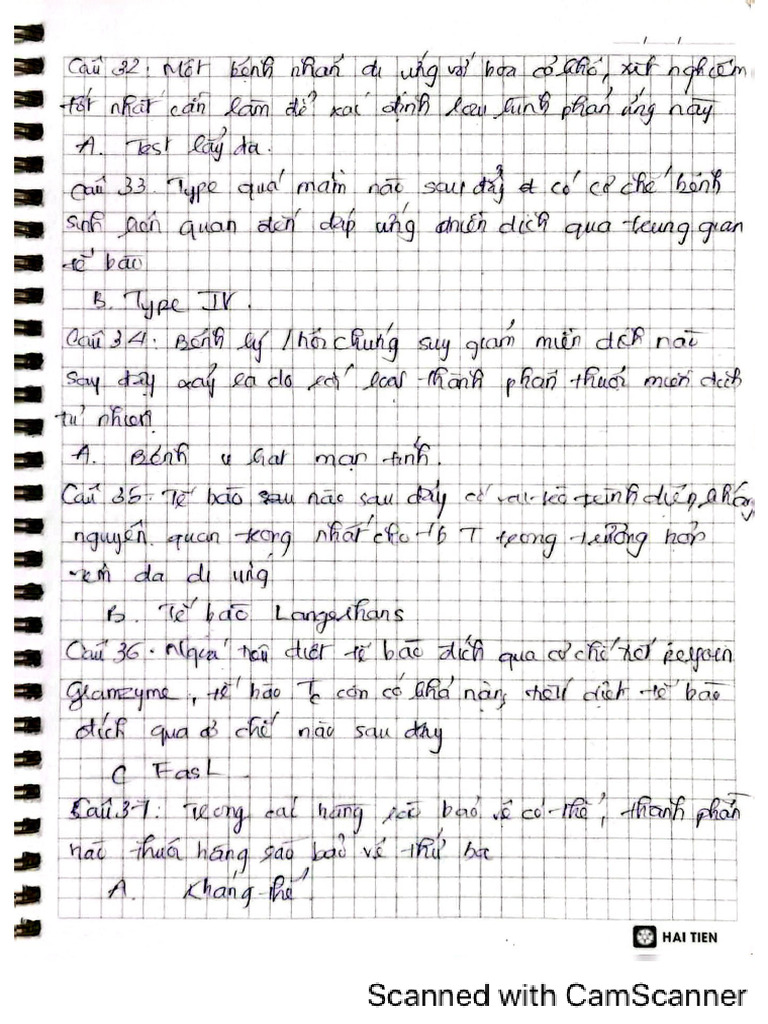 Câu 32: Một bệnh nhân dị ứng với hoa cỏ khô, xét nghiệm
tốt nhất cần làm để xác định loại hình phản ứng này
A. Test lẩy da.
Câu 33. Type quá mẫn nào sau đây có cơ chế bệnh
sinh liên quan đến đáp ứng miễn dịch qua trung gian
tế bào
B. Type IV.
Câu 34. Bệnh lý / hội chứng suy giảm miễn dịch nào
sau đây xảy ra do rối loạn thành phần thuộc miễn dịch
tự nhiên
A. Bệnh u hạt mạn tính.
Câu 35. Tế bào nào sau đây có vai trò trình diện kháng
nguyên quan trọng nhất cho tb T trong trường hợp
viêm da dị ứng
B. Tế bào Langerhans
Câu 36. Ngoài tiêu diệt tế bào đích qua cơ chế tiết perforin
Granzyme, tế bào Tc còn có khả năng tiêu diệt tế bào
đích qua cơ chế nào sau đây
C FasL
Câu 37: Trong các hàng rào bảo vệ cơ thể, thành phần
nào thuộc hàng rào bảo vệ thứ ba
A. Kháng thể.
HAI TIEN
Scanned with CamScanner